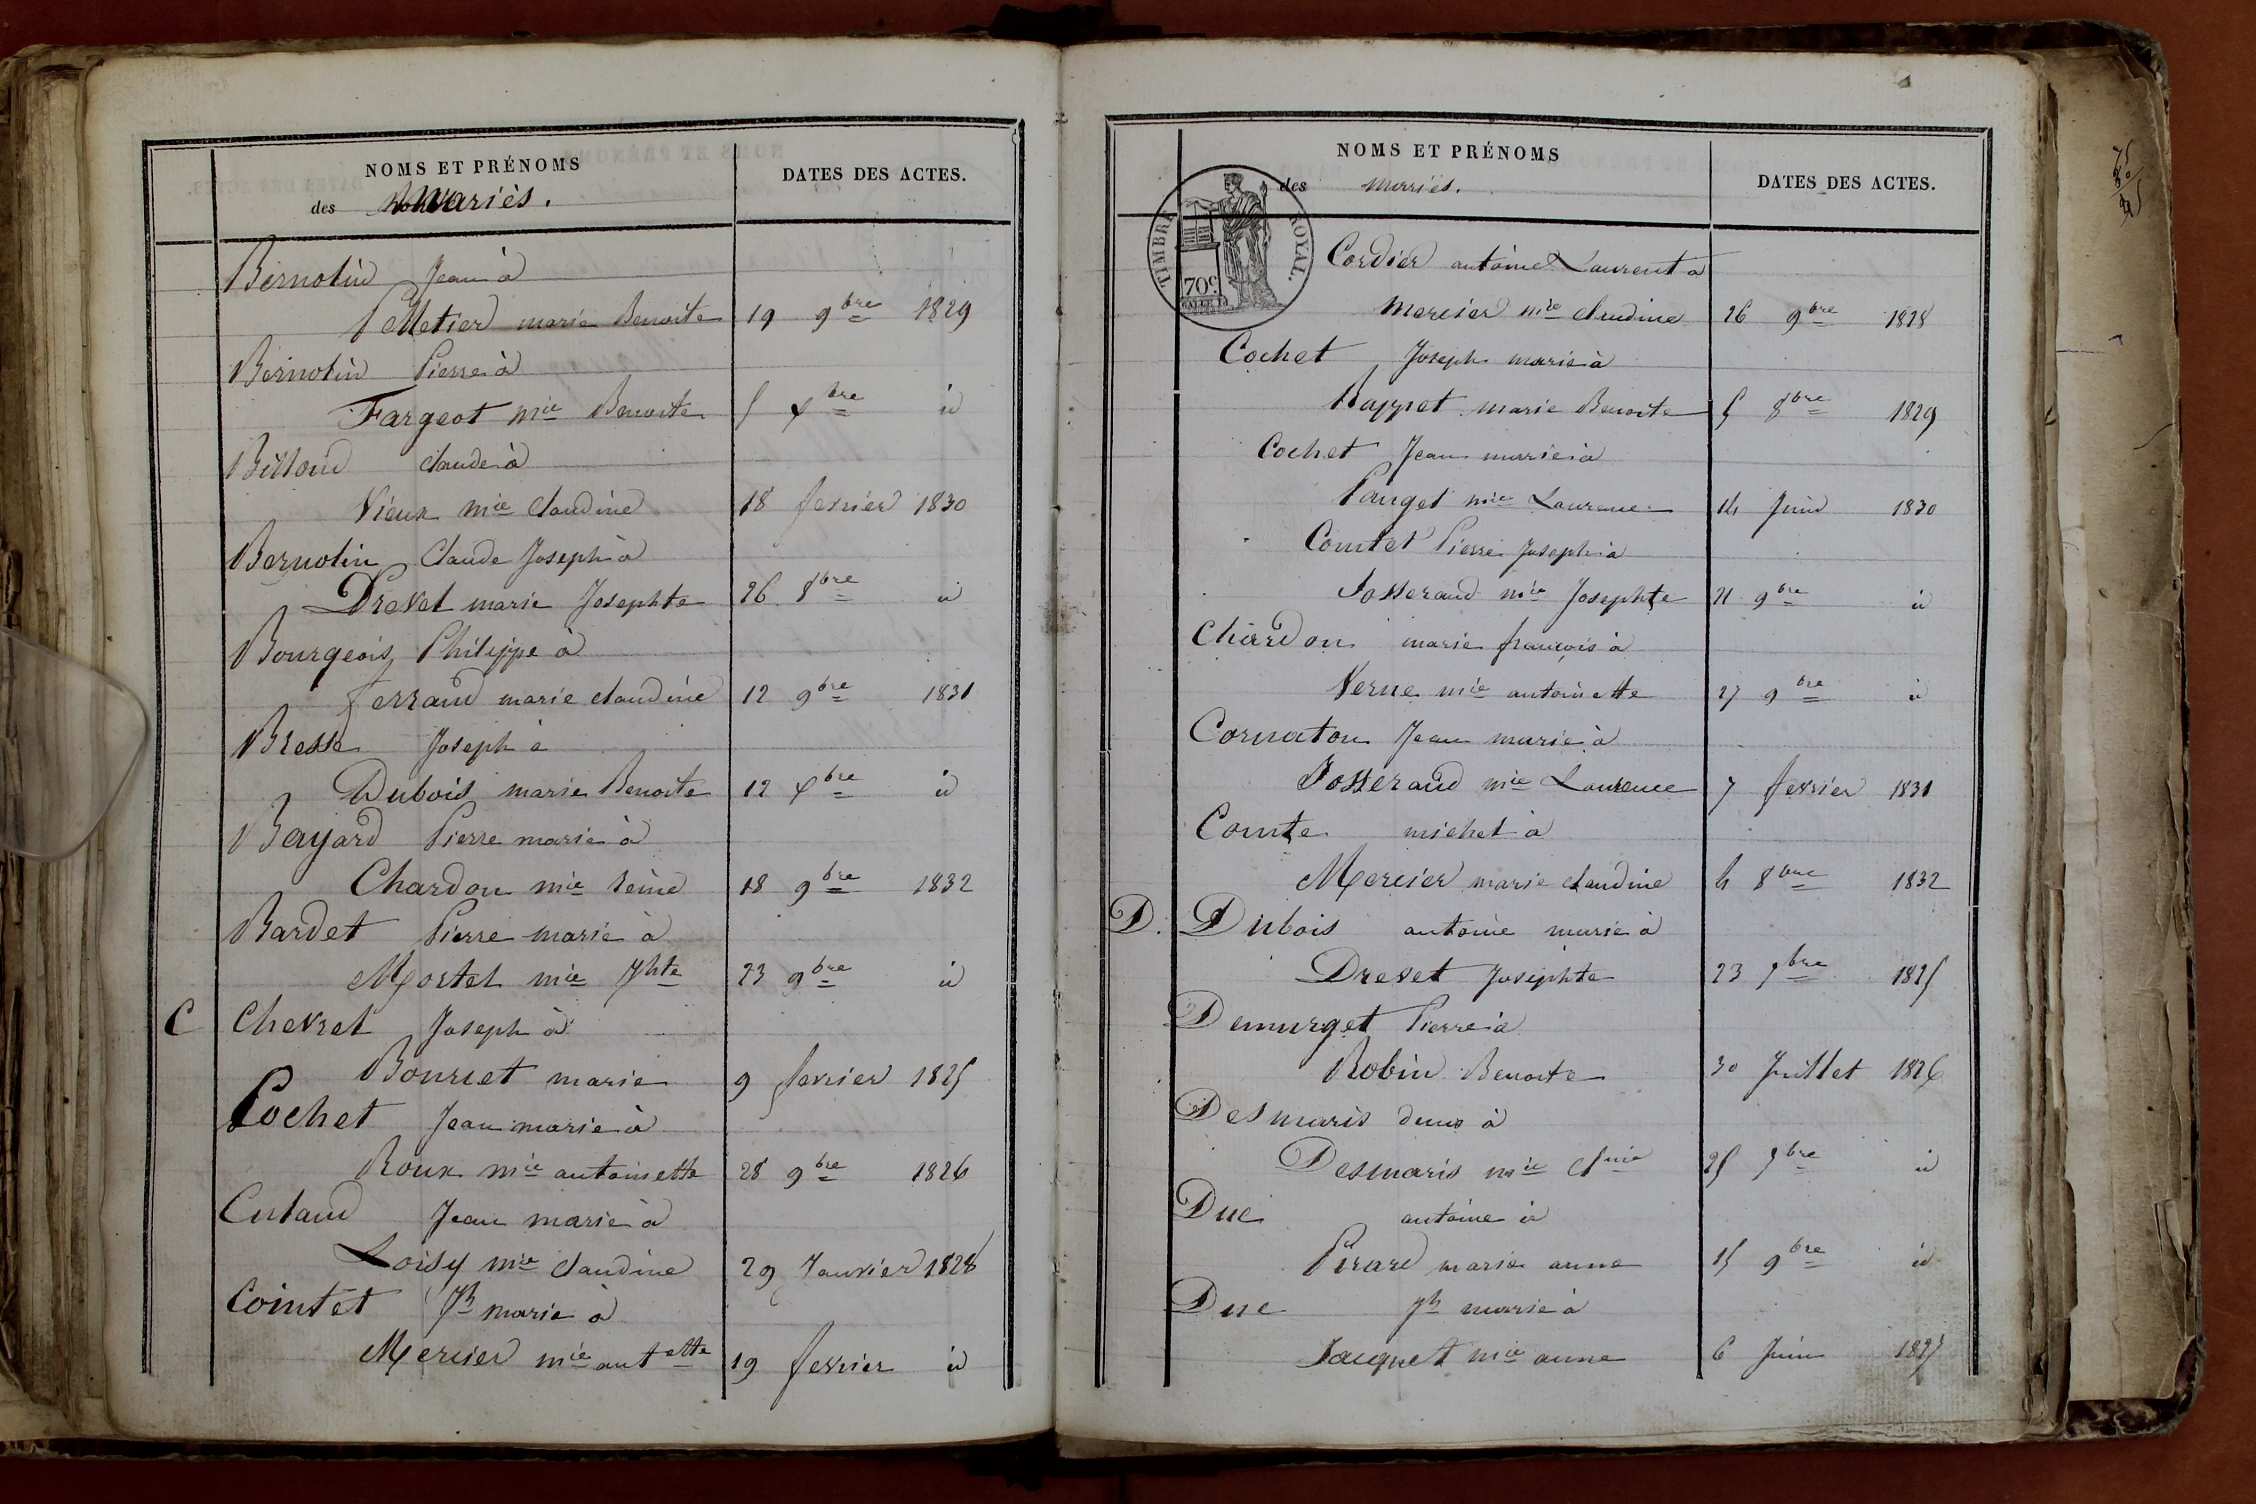 NOMS ET PRÉNOMS
des mariés.
DATES DES ACTES.
Bernolin Jean à
Pelletier marie Benoite 19 9bre 1829
Bernolin Pierre à
Fargeot mie Benoite 5 xbre id
Billoud claude à
Vieux mie claudine 18 fevrier 1830
Bernolin Claude Joseph à
Drevet marie Josephte 26 8bre id
Bourgeois Philippe à
Ferrand marie claudine 12 9bre 1831
Bresse Joseph à
Dubois marie Benoite 12 xbre id
Bayard Pierre marie à
Chardon mie reine 18 9bre 1832
Bardet Pierre marie à
Mortel mie Jhte 23 9bre id
C Chevret Joseph à
Bourcet marie 9 fevrier 1825
Cochet Jean marie à
Roux mie antoinette 28 9bre 1826
Cutaud Jean marie à
Loisy mie claudine 29 Janvier 1828
Cointet Jh marie à
Mercier mie antette 19 fevrier id
NOMS ET PRÉNOMS
des mariés.
DATES DES ACTES.
TIMBRE ROYAL.
70c.
Cordier antoine Laurent à
mercier mie claudine 26 9bre 1828
Cochet Joseph marie à
Rappet marie Benoite 5 8bre 1829
Cochet Jean marie à
Pauget mie Laurence 14 Juin 1830
Comtet Pierre Joseph à
Josserand mie Josephte 21 9bre id
Chardon marie françois à
Verne mie antoinette 27 9bre id
Cornaton Jean marie à
Josserand mie Laurence 7 fevrier 1831
Comte michel à
Mercier marie claudine 4 8bre 1832
D. Dubois antoine marie à
Drevet Josephte 23 9bre 1825
Demurget Pierre à
Robin Benoite 30 Juillet 1826
Desmaris à
Desmaris mie 25 9bre id
Duc antoine à
Pirard marie anne 15 9bre id
Duc Jh marie à
Jacquet mie anne 6 Juin 1827